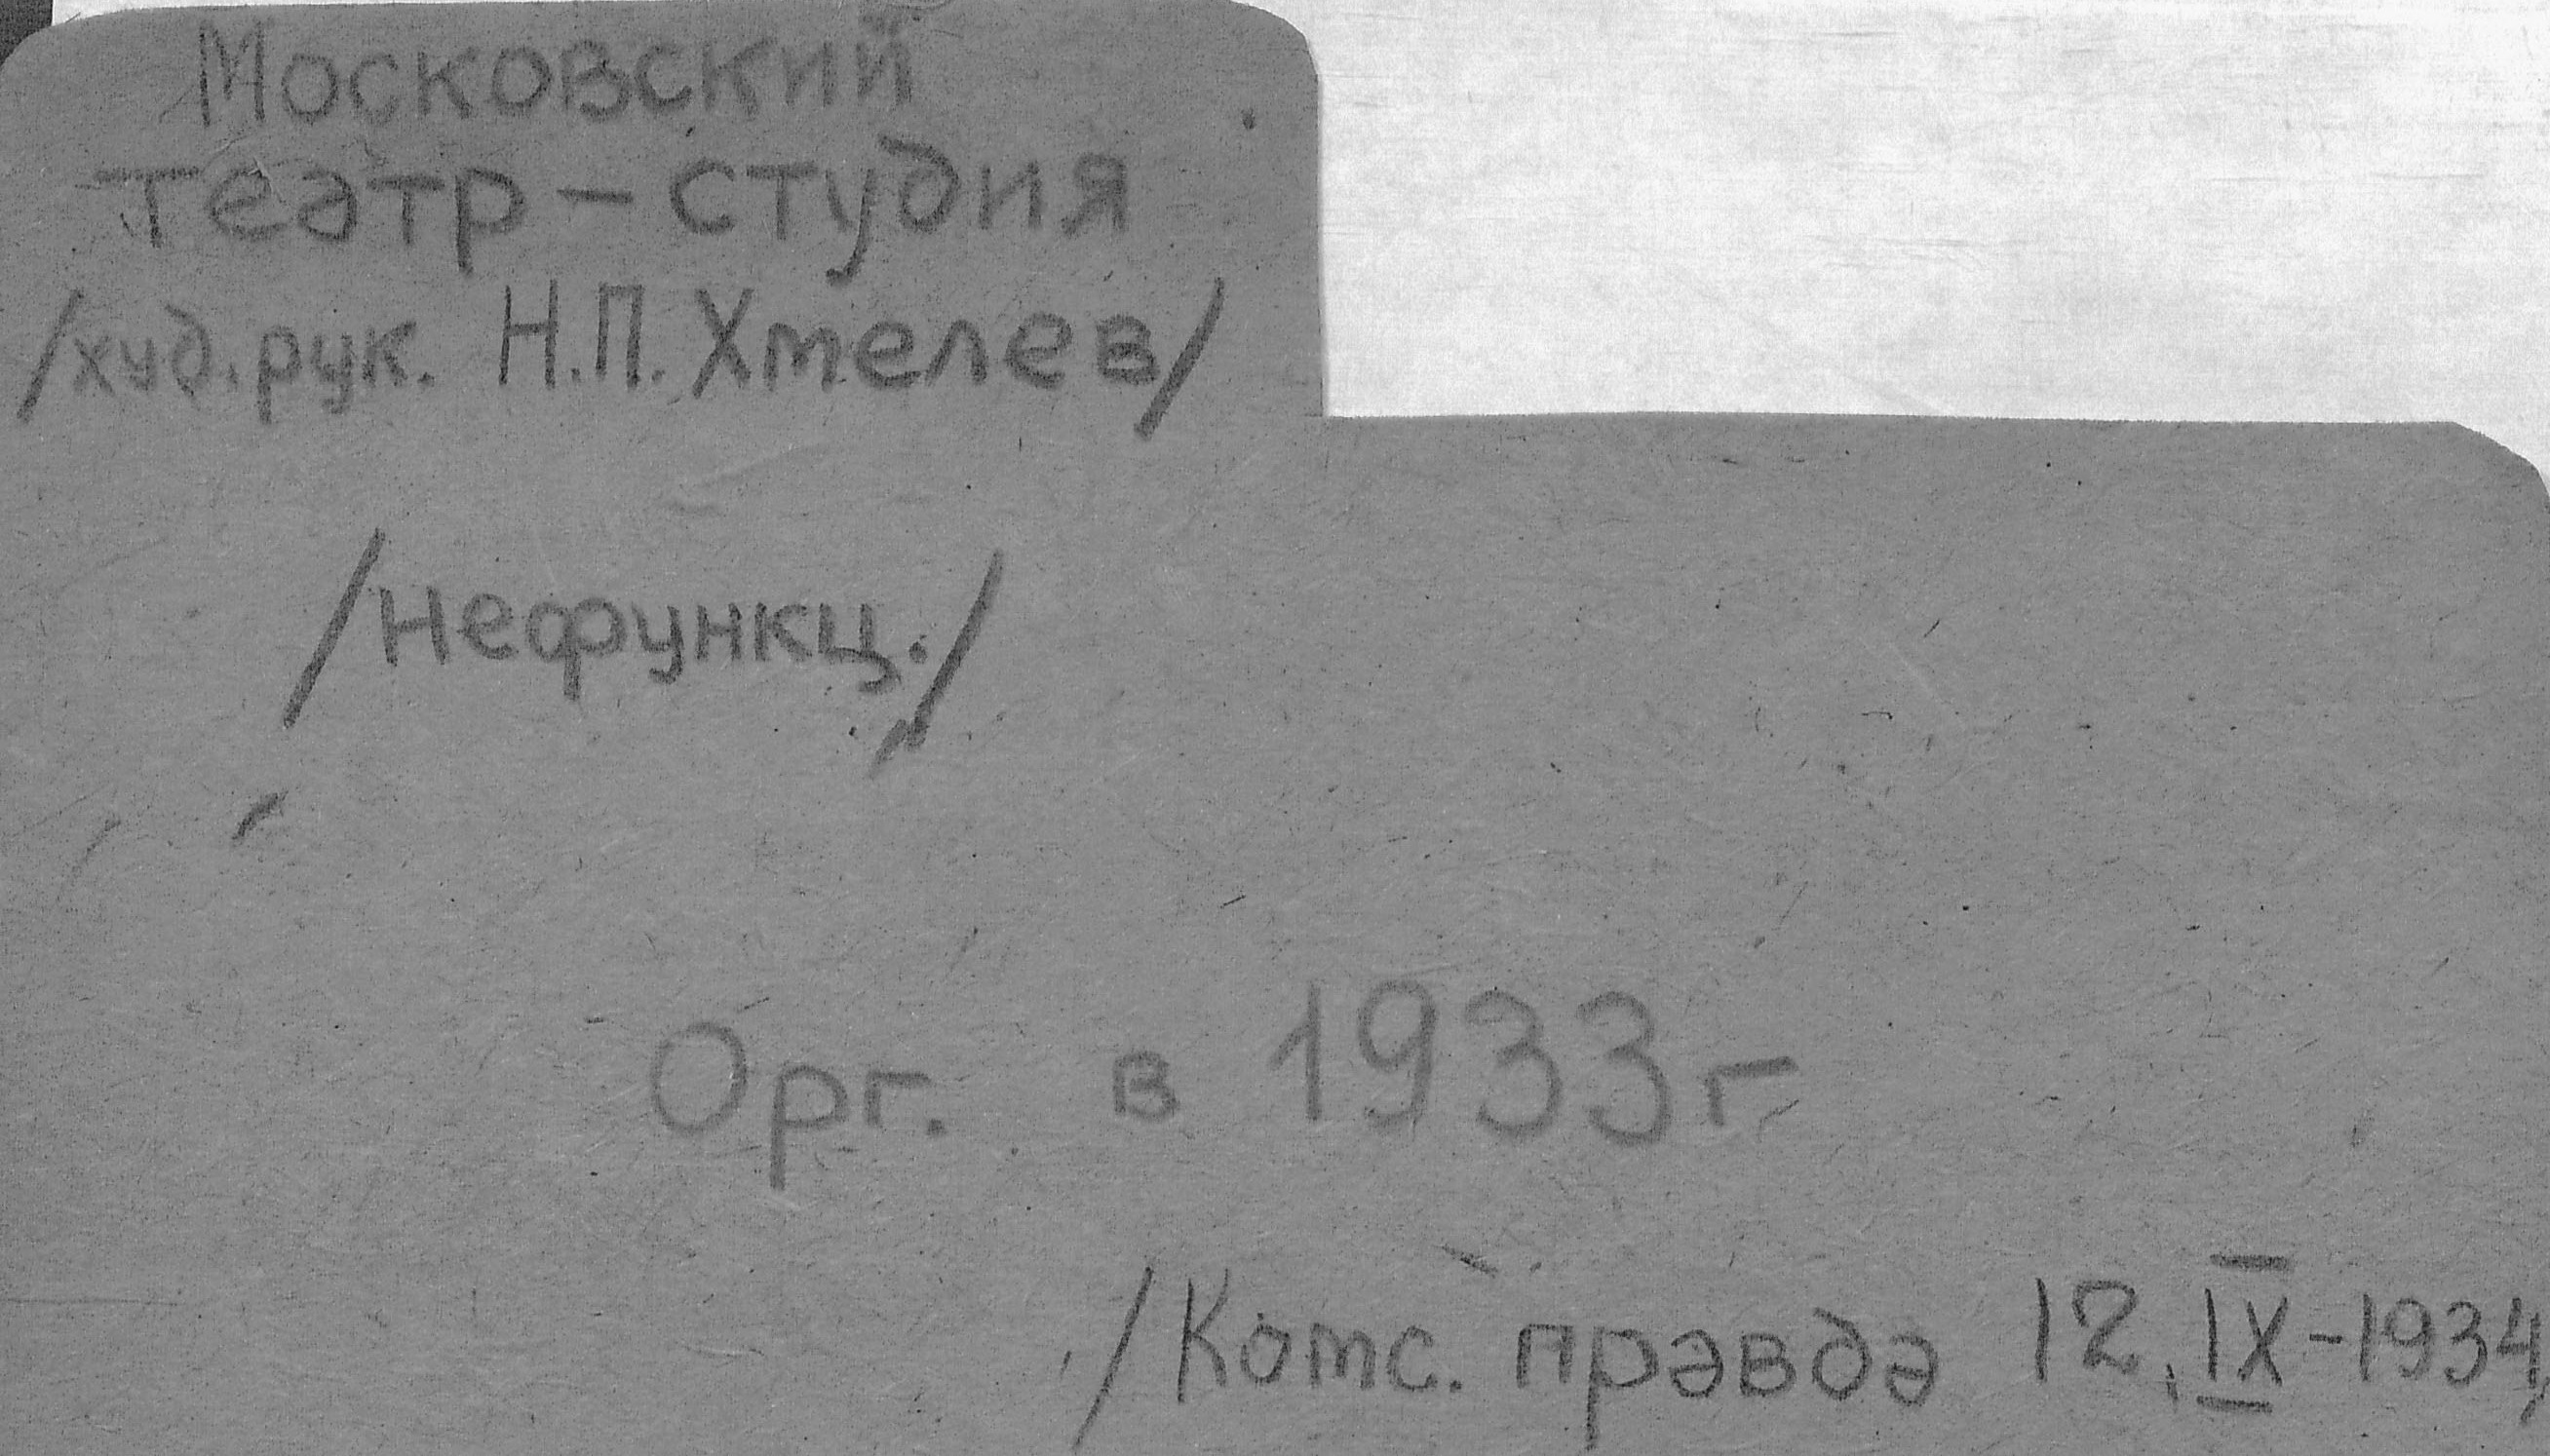 Московский
театр - студия
/худ. рук. Н.П. Хмелев/
/нефункц./
Орг. в 1933 г.
/Комс. правда 12.IX-1934/